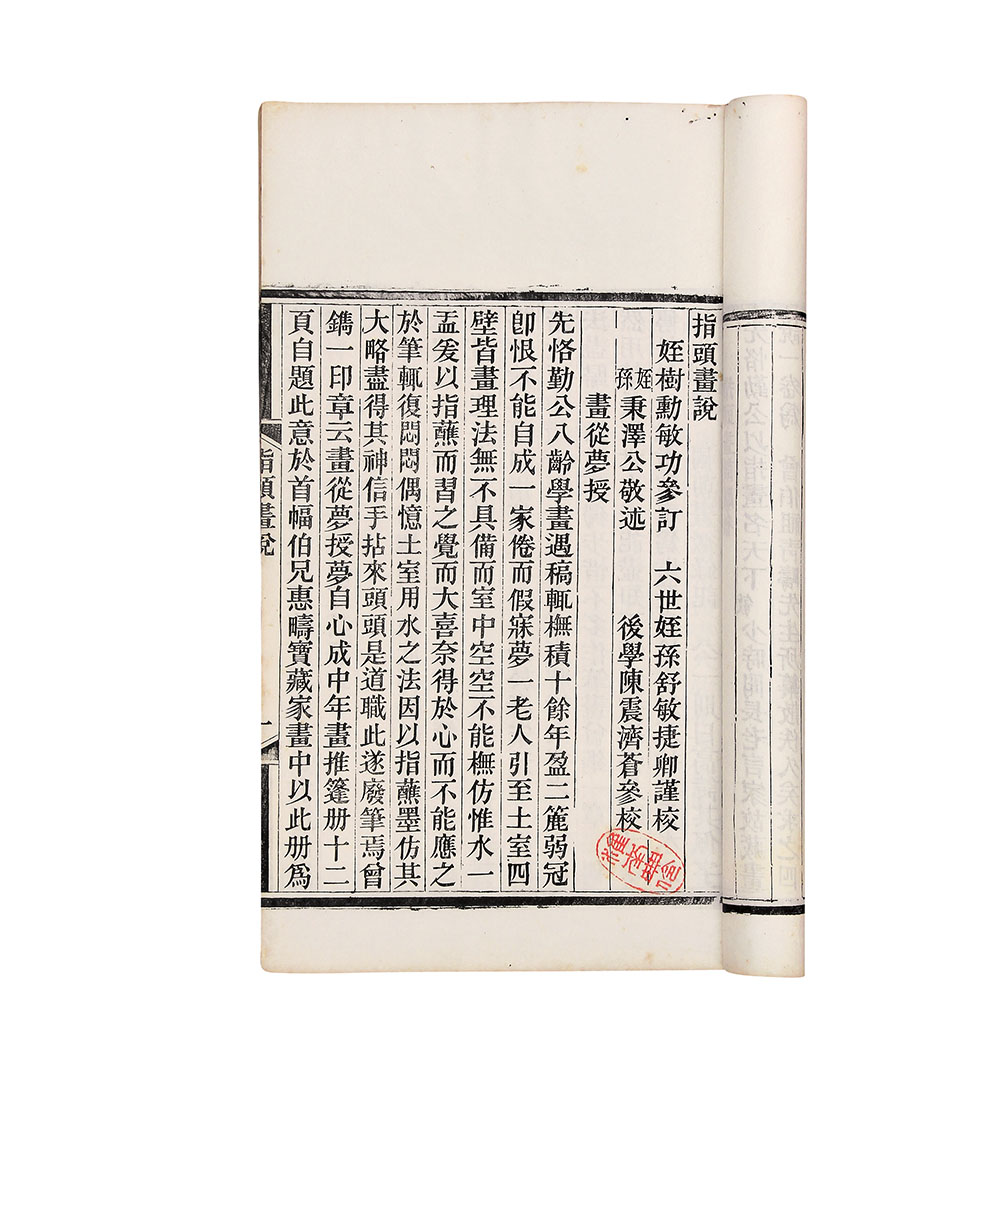 指頭畫說
姪樹勳敏功參訂 六世姪孫舒敏捷卿謹校
姪孫秉澤公敬述 後學陳震濟蒼參校
畫從夢授
先恪勤公八齡學畫遇稿輒橅積十餘年盈二簏弱冠
卽恨不能自成一家倦而假寐夢一老人引至土室四
壁皆畫理法無不具備而室中空空不能橅仿惟水一
盂爰以指蘸而習之覺而大喜奈得於心而不能應之
於筆輒復悶悶偶憶土室用水之法因以指蘸墨仿其
大略盡得其神信手拈來頭頭是道職此遂廢筆焉曾
鐫一印章云畫從夢授夢自心成中年畫推篷册十二
頁自題此意於首幅伯兄惠疇寶藏家畫中以此册爲
指頭畫說
一